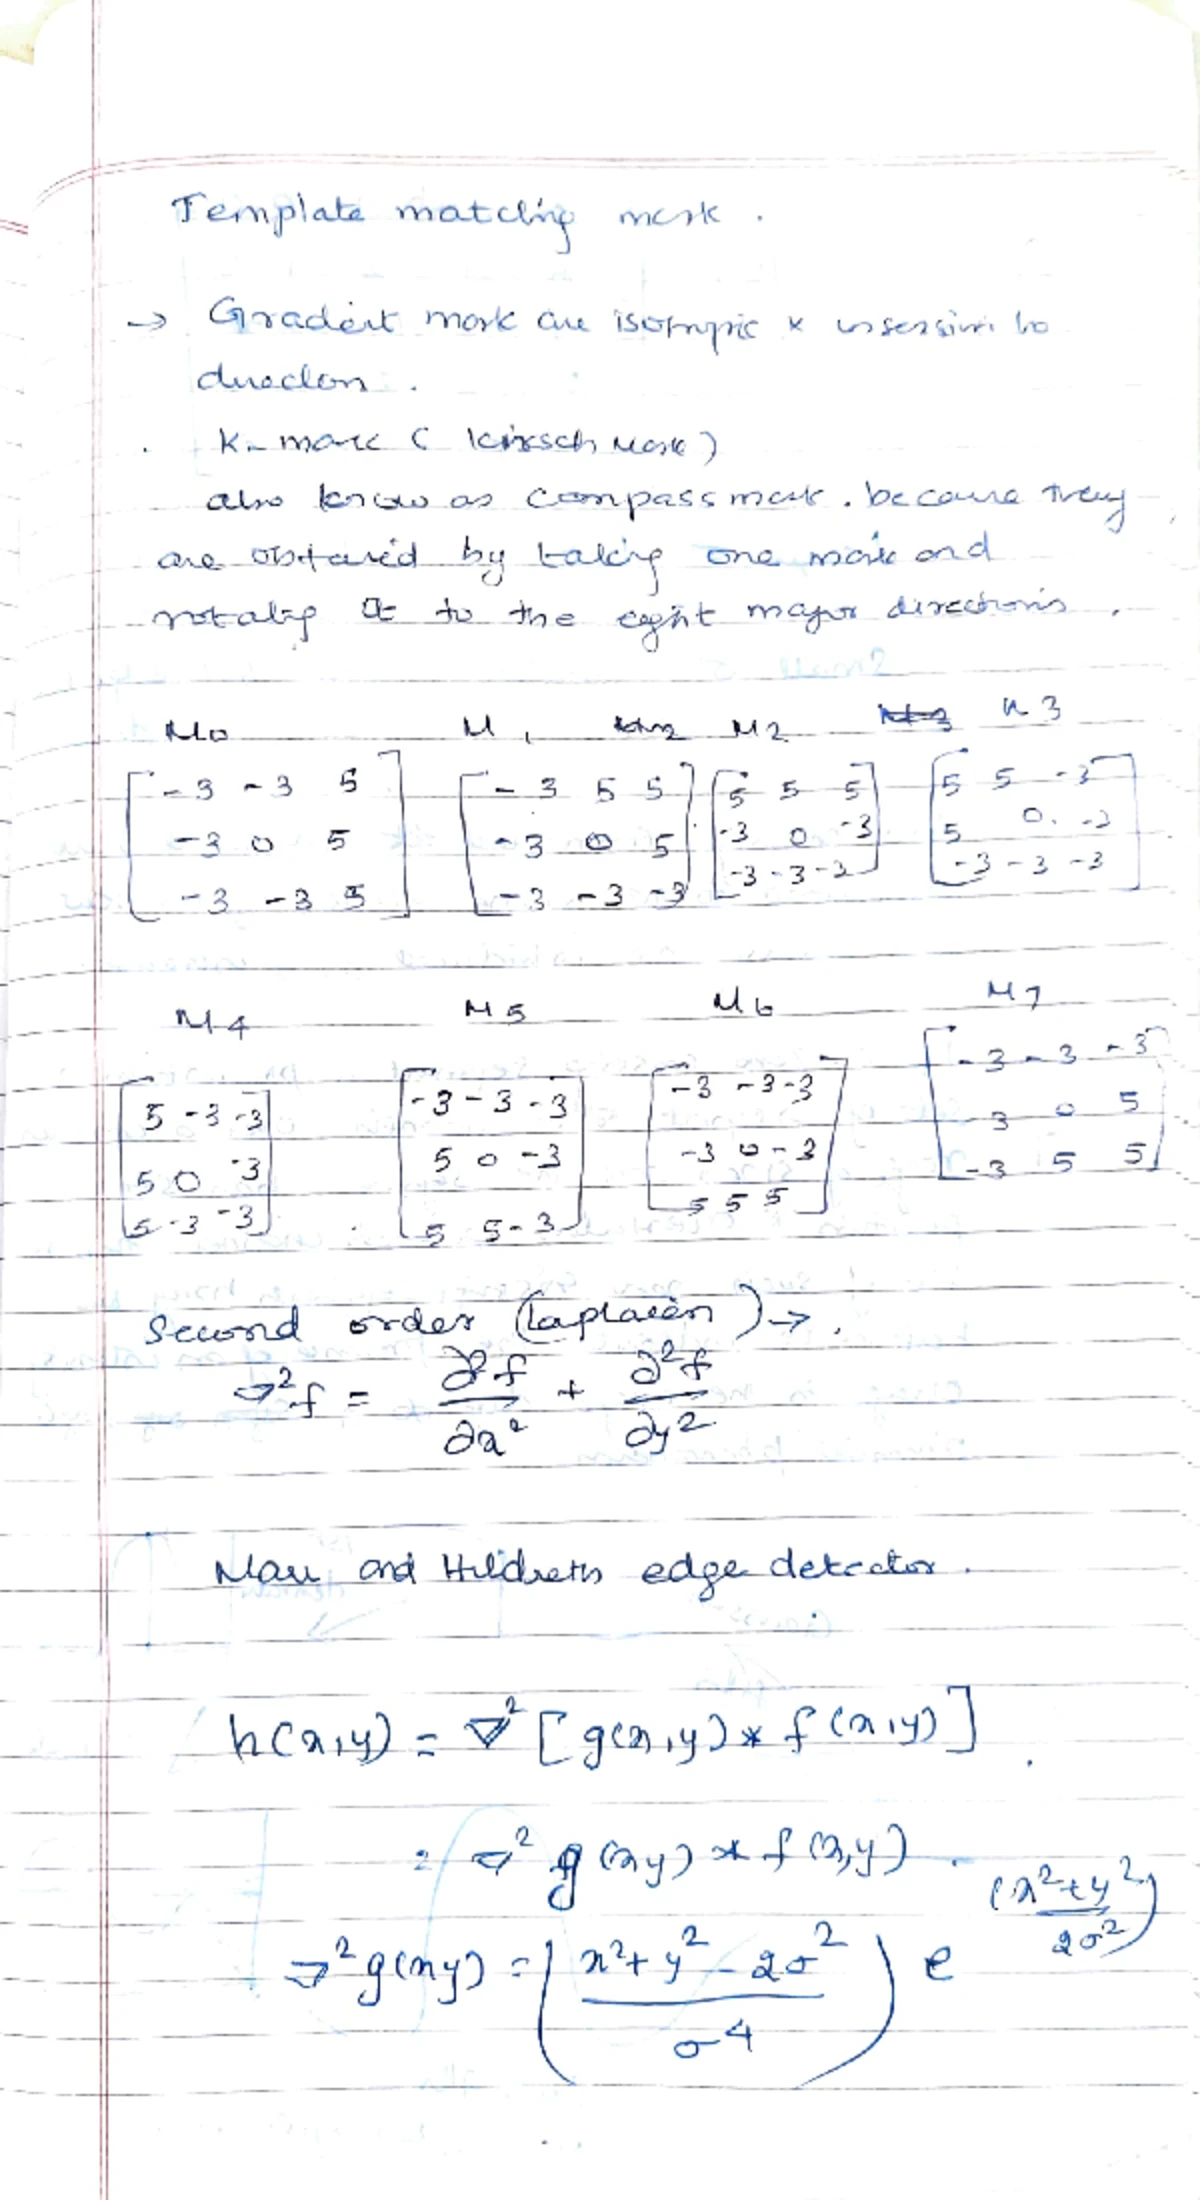 Template matching mask .
→ Gradient mask are isotropic & insensitive to
direction .
. K- mask ( kirsch Mask )
also know as compass mask . because they
are obtained by taking one mask and
rotating it to the eight major directions .
M0 M1 M2 M3
[ -3 -3 5 ] [ -3 5 5 ] [ 5 5 5 ] [ 5 5 -3 ]
[ -3 0 5 ] [ -3 0 5 ] [ -3 0 -3 ] [ 5 0 -3 ]
[ -3 -3 5 ] [ -3 -3 -3 ] [ -3 -3 -3 ] [ -3 -3 -3 ]
M4 M5 M6 M7
[ 5 -3 -3 ] [ -3 -3 -3 ] [ -3 -3 -3 ] [ -3 -3 -3 ]
[ 5 0 -3 ] [ 5 0 -3 ] [ -3 0 -3 ] [ -3 0 5 ]
[ 5 -3 -3 ] [ 5 5 -3 ] [ 5 5 5 ] [ -3 5 5 ]
Second order (Laplacian ) → .
∇²f = ∂²f/∂x² + ∂²f/∂y²
Marr and Hildreth edge detector .
h(x,y) = ∇² [ g(x,y) * f(x,y) ] .
= ∇² g(xy) * f(x,y) .
∇² g(xy) = ( (x² + y² - 2σ²) / σ⁴ ) e^((x²+y²)/2σ²)